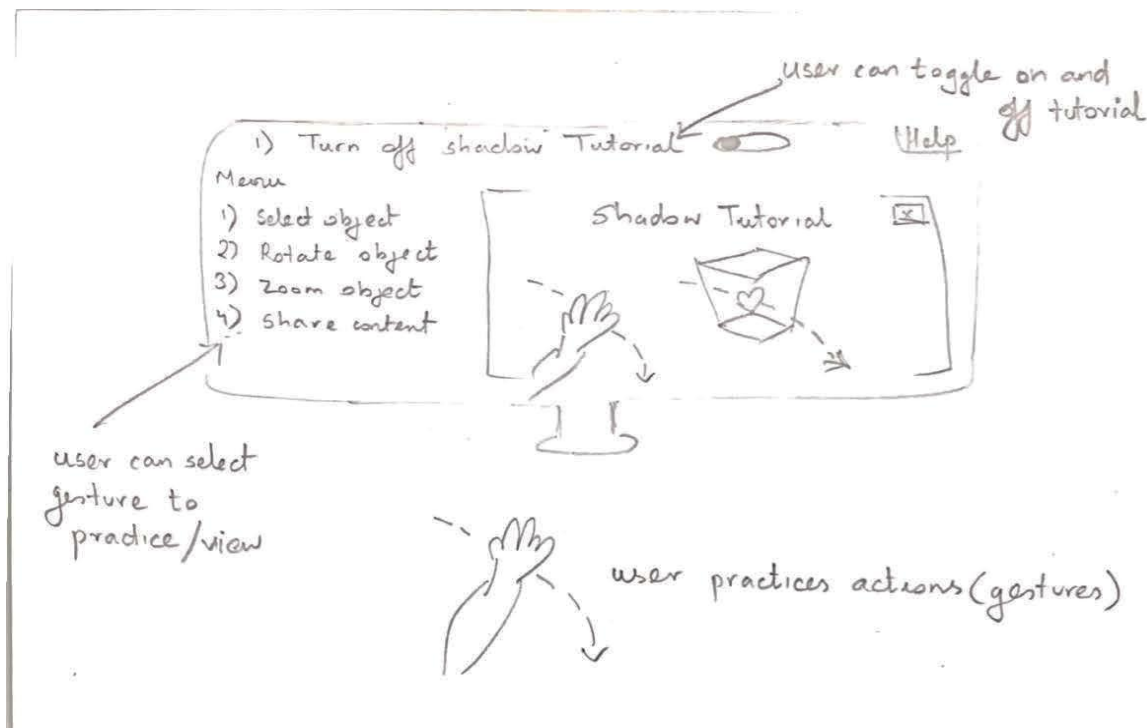 user can toggle on and
off tutorial
1) Turn off shadow Tutorial
Help
Menu
1) Select object
2) Rotate object
3) Zoom object
4) Share content
Shadow Tutorial
x
user can select
gesture to
practice/view
user practices actions (gestures)